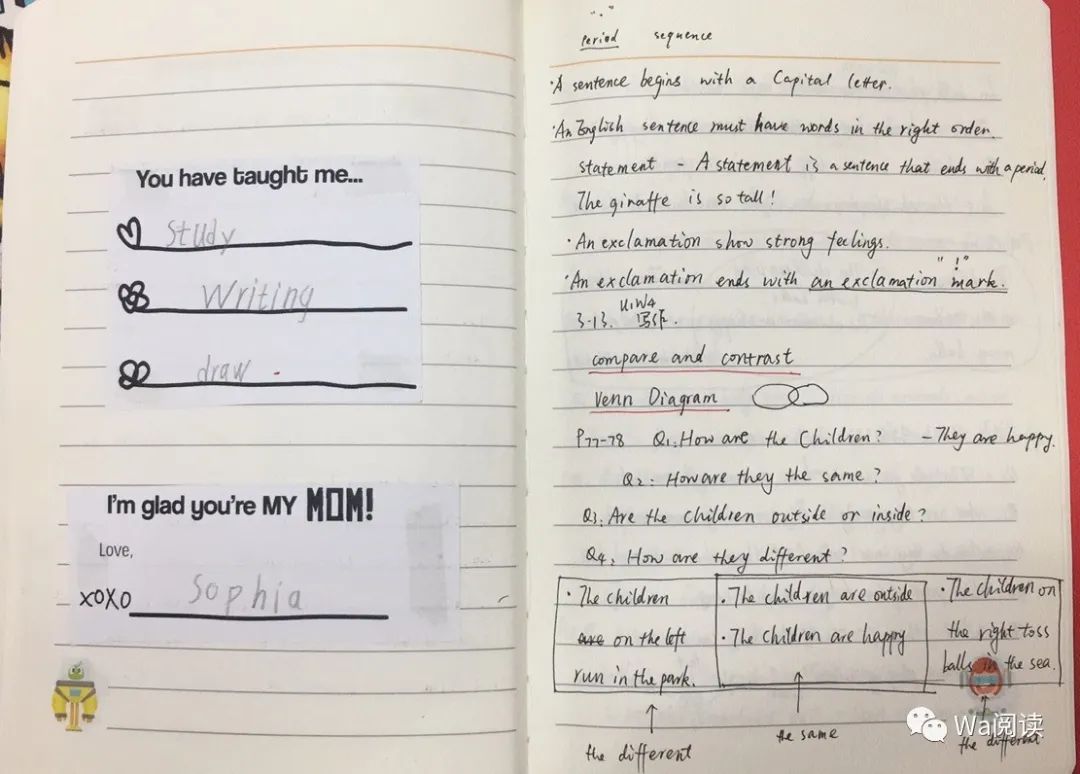 You have taught me...
Study
Writing
draw
I'm glad you're MY MOM!
Love,
XOXO Sophia
"."
period sequence
·A sentence begins with a Capital letter.
·An English sentence must have words in the right order.
statement - A statement is a sentence that ends with a period.
The giraffe is so tall!
·An exclamation show strong feelings.
"!"
·An exclamation ends with an exclamation mark.
U1W4
3-13. 写作.
compare and contrast
Venn Diagram
P77-78 Q1: How are the Children? - They are happy.
Q2: How are they the same?
Q3: Are the children outside or inside?
Q4: How are they different?
·The children
are on the left
run in the park.
·The children are outside
·The children are happy
·The children on
the right toss
balls in the sea.
the different
the same
the different
Wa阅读